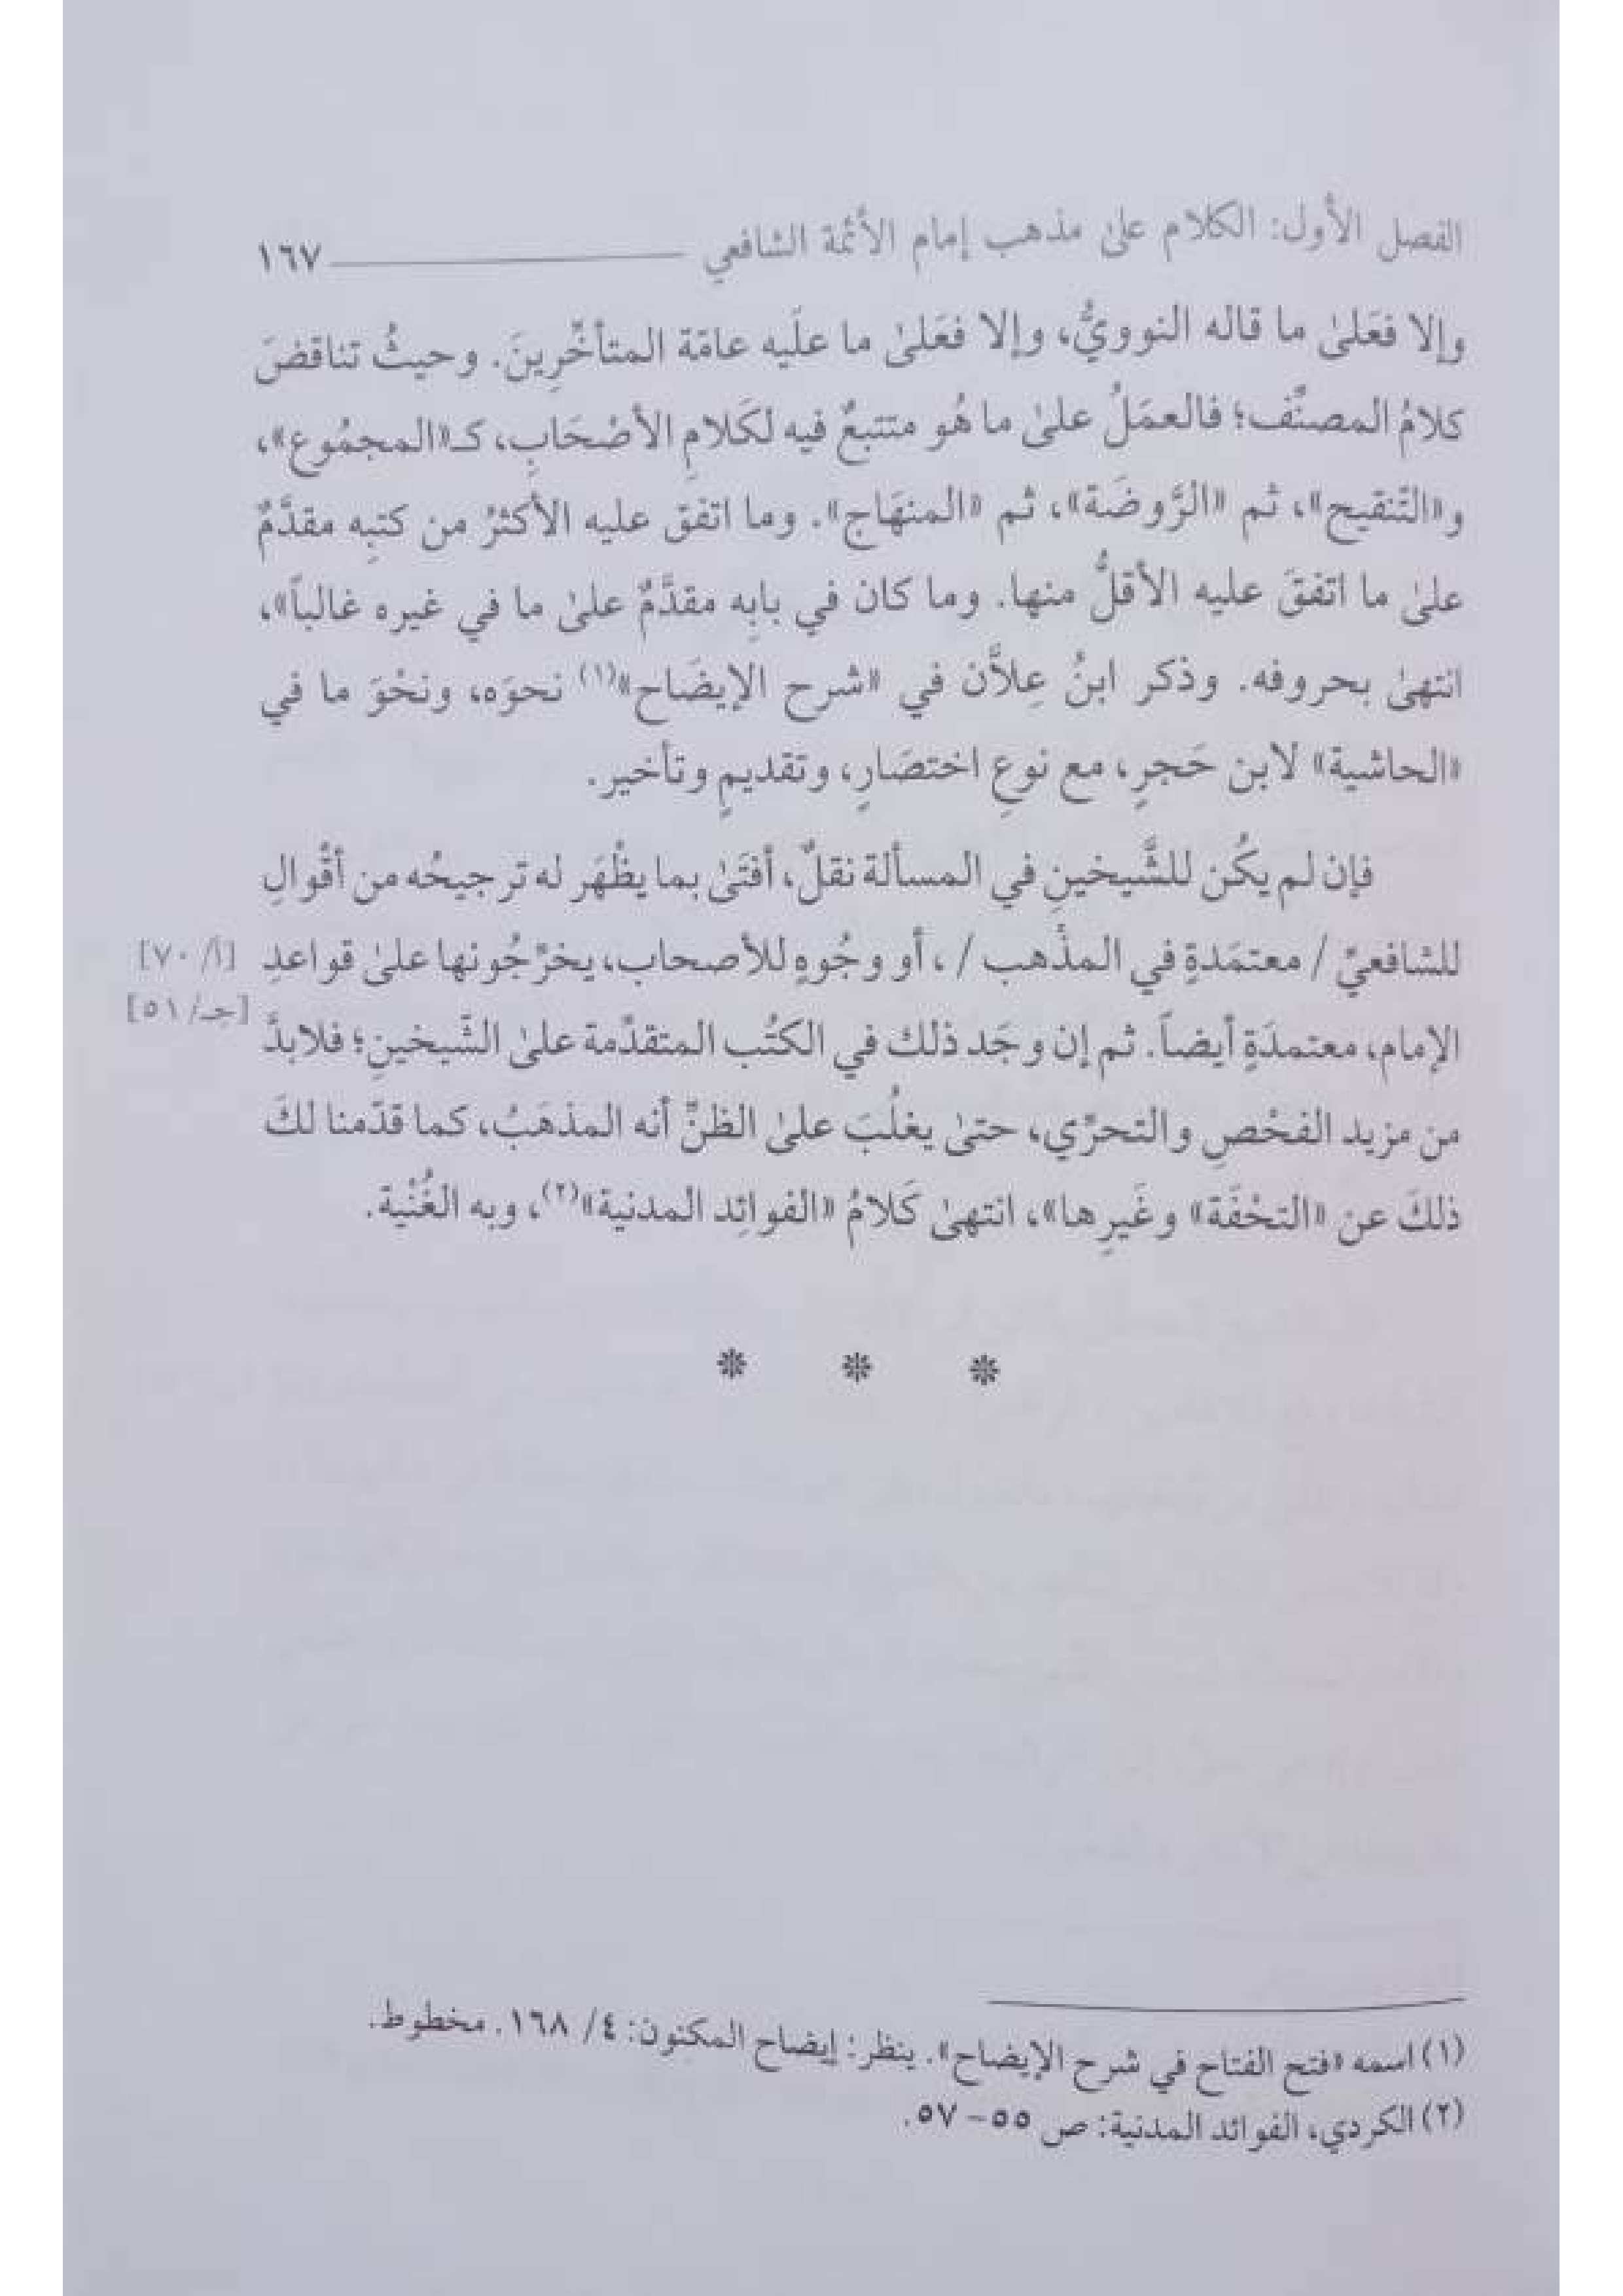 الفصل الأول: الكلام على مذهب إمام الأئمة الشافعي ١٦٧
وإلا فعَلىٰ ما قاله النوويُّ، وإلا فعَلىٰ ما علَيه عامّة المتأخِّرِينَ. وحيثُ تناقضَ
كلامُ المصنِّف؛ فالعمَلُ علىٰ ما هُو متتبعٌ فيه لكَلامِ الأصْحَابِ، كـ«المجمُوع»،
و«التّنقيح»، ثم «الرَّوضَة»، ثم «المنهَاج». وما اتفق عليه الأكثرُ من كتبِه مقدَّمٌ
علىٰ ما اتفقَ عليه الأقلُّ منها. وما كان في بابِه مقدَّمٌ علىٰ ما في غيره غالباً»،
انتهىٰ بحروفه. وذكر ابنُ عِلاَّن في «شرح الإيضَاح»(١) نحوَه، ونحْوَ ما في
«الحاشية» لابن حَجرٍ، مع نوعِ اختصَارٍ، وتقديمٍ وتأخير.
فإن لم يكُن للشَّيخينِ في المسألة نقلٌ، أفتَىٰ بما يظْهَر له ترجيحُه من أقْوالِ
للشافعيِّ / معتمَدةٍ في المذْهب /، أو وجُوهٍ للأصحاب، يخرِّجُونها علىٰ قواعدِ [أ/ ٧٠]
الإمام، معتمدَةٍ أيضاً. ثم إن وجَد ذلك في الكتُب المتقدّمة علىٰ الشّيخينِ؛ فلابدَّ [جـ/ ٥١]
من مزيد الفحْصِ والتحرِّي، حتىٰ يغلُبَ علىٰ الظنِّ أنه المذهَبُ، كما قدّمنا لكَ
ذلكَ عن «التحْفَة» وغَيرِها»، انتهىٰ كَلامُ «الفوائِد المدنية»(٢)، وبه الغُنْية.
* * *
(١) اسمه «فتح الفتاح في شرح الإيضاح». ينظر: إيضاح المكنون: ٤/ ١٦٨. مخطوط.
(٢) الكردي، الفوائد المدنية: ص ٥٥- ٥٧.